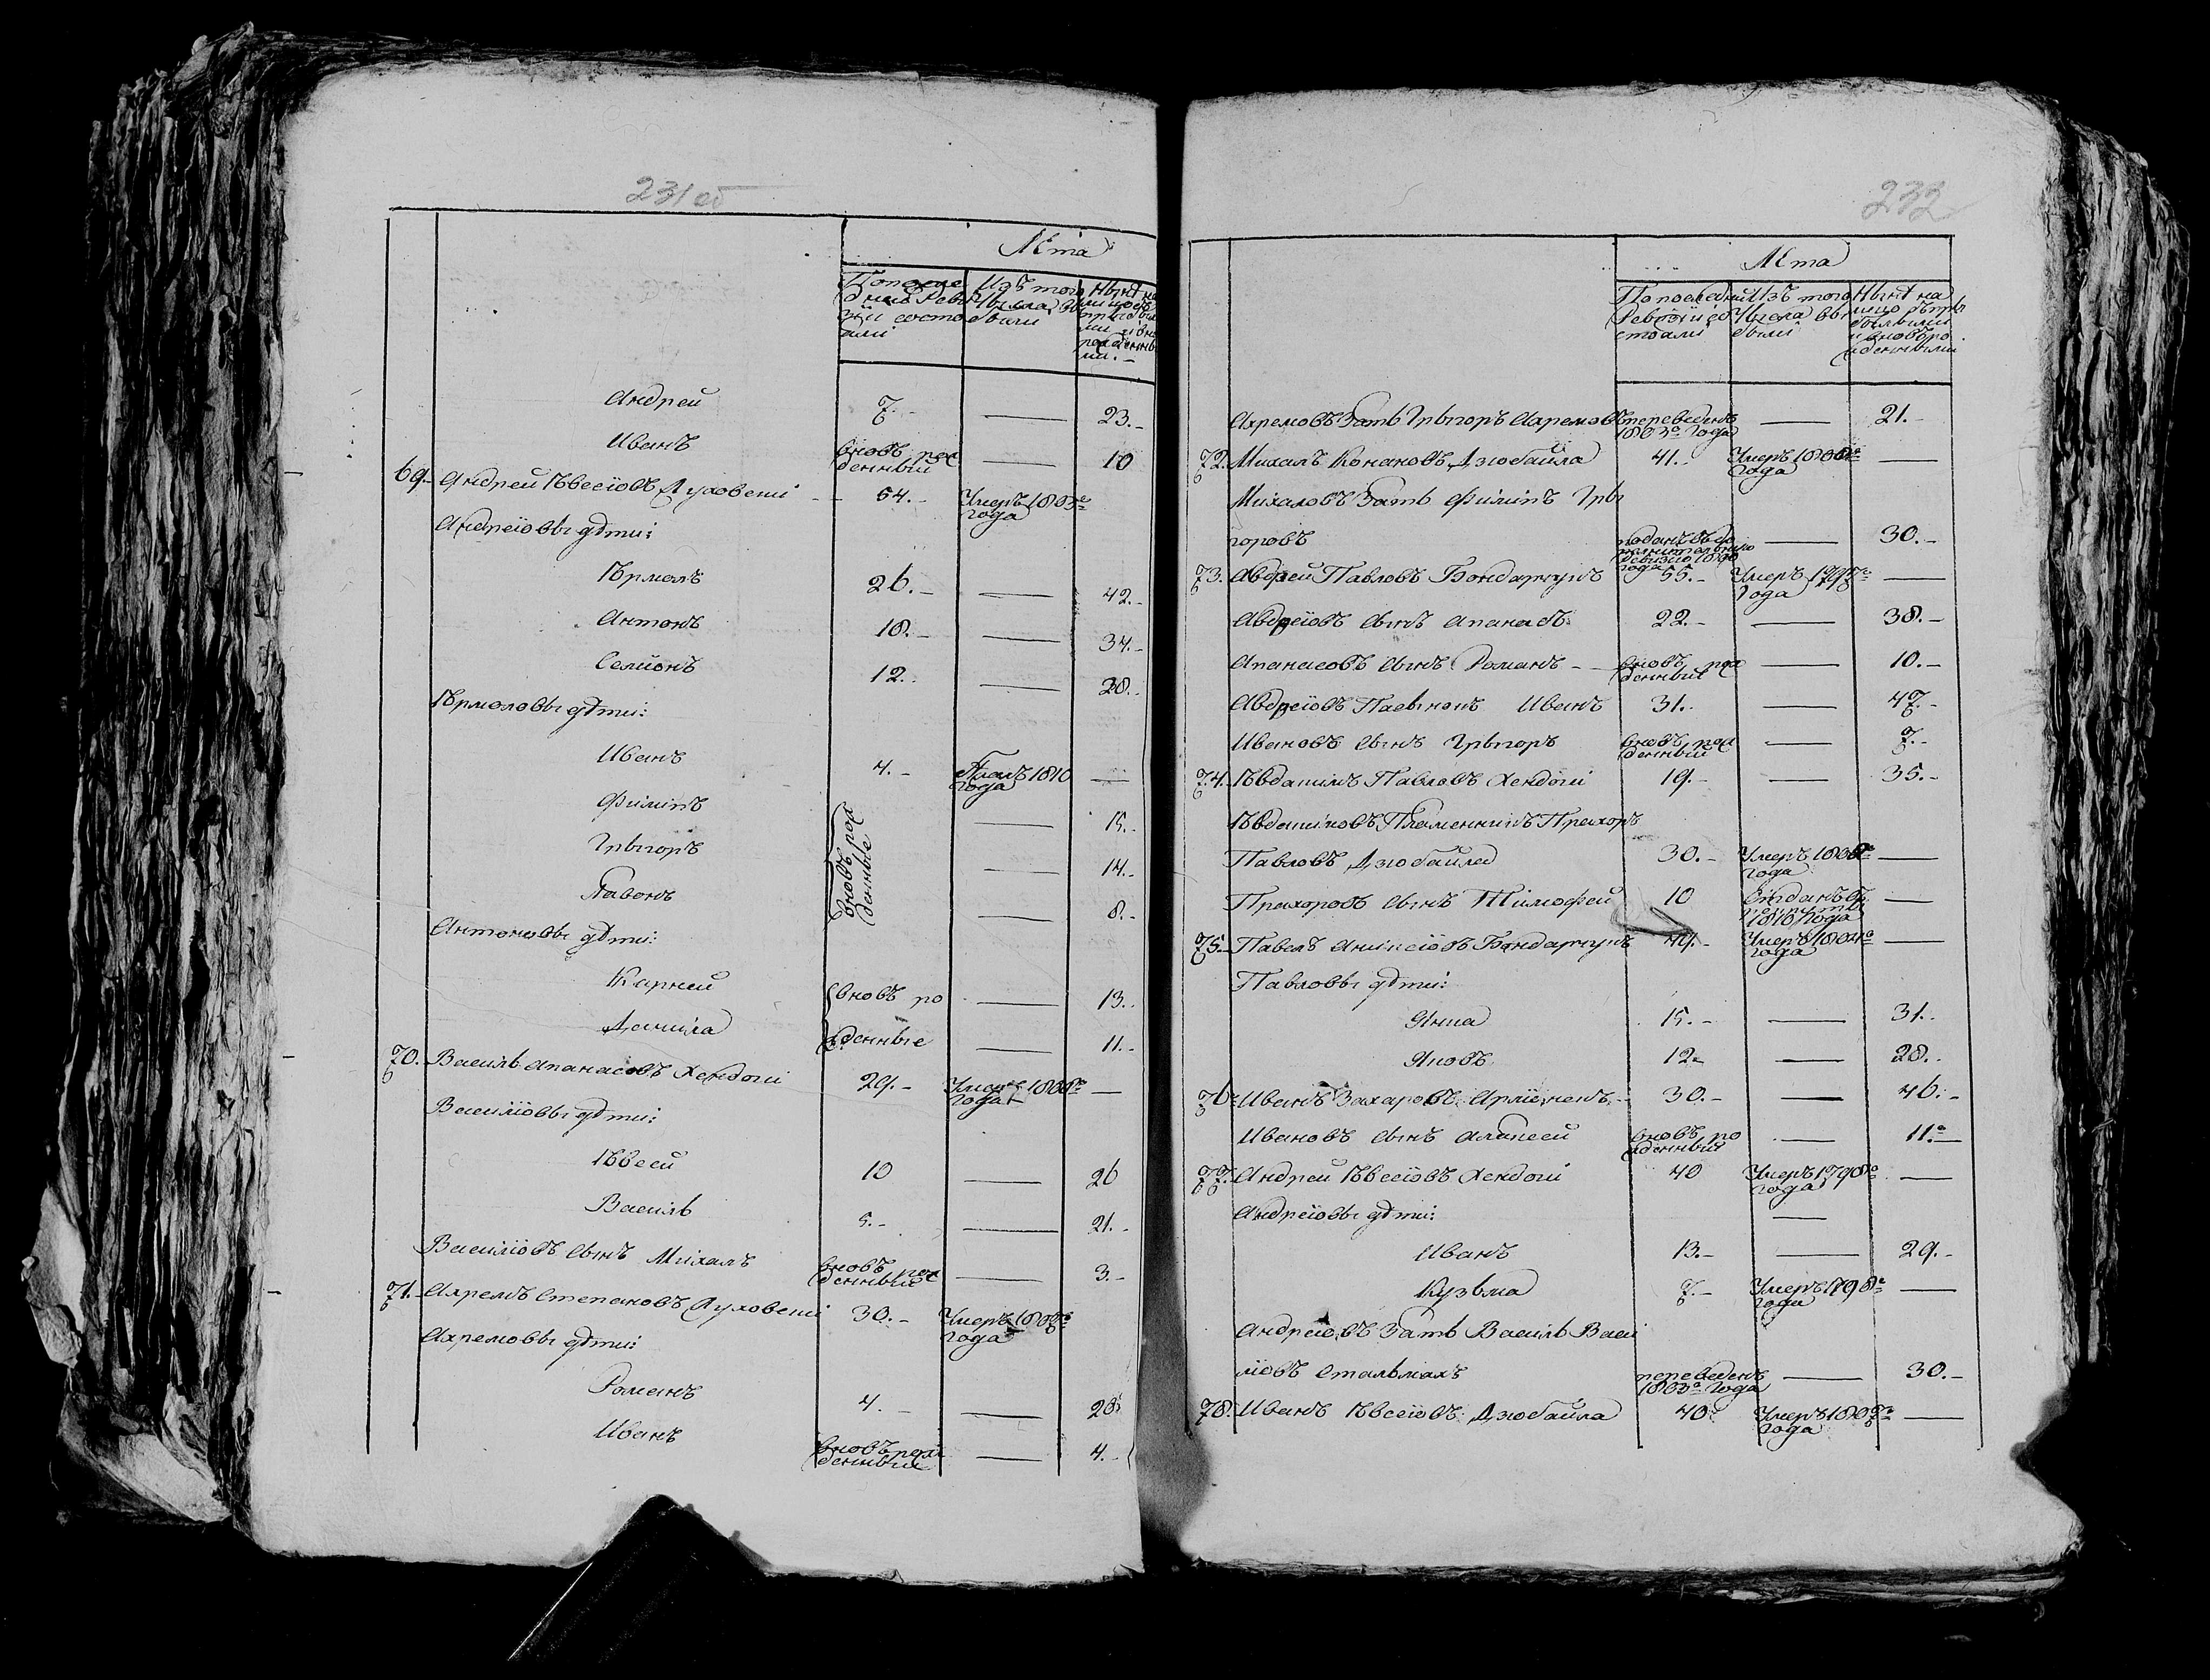 231 об
Лѣта
После
дней Реви
зіи состо
яли
Изъ того
Числа вы
были
Нынѣ на
лицо съ
прибыв
ми и вно
рожденны
ми. –
Андрей 7. – — 23. –
Иванъ вновь рож
денный — 10
69. – Андрей Евсеіовъ Луховеш 54. – Умеръ 1803го
года
Андреіовы дѣти:
Ермолъ 26. – — 42. –
Антонъ 18. – — 34. –
Семионъ 12. — 28. –
Ермоловы дѣти:
Иванъ 4. – 1810 —
года
Филипъ вновь рож
денные — 15. –
Грыгоръ — 14. –
Павонъ — 8. –
Антоновы дѣти:
Карней вновь ро — 13.
Данила жденные — 11. –
70. Василь Апанасовъ Хендоги 29. – Умеръ 1806го —
года
Василіовы дѣти:
Евсей 10 — 26
Василь 5. – — 21. –
Василіовъ сынъ Михалъ вновь рож
денный — 3. –
71. – Ахремъ Степановъ Луховеш 30. – Умеръ
года
Ахремовы дѣти:
Романъ 4. – — 20
Иванъ вновь рож
денный — 4. –
232
Лѣта
По последней
Ревизіи со
стояли
Изъ того
Числа вы
были
Нынѣ на
лицо съ при
былыми
и вновь ро
жденными
Ахремовъ Зять Грыгоръ Ахремовъ переведенъ — 21. –
1803го Года
72. Михалъ Конановъ Дзюбайла 41. – Умеръ —
года
Михаловъ Зять Филипъ Гры
горовъ поданъ въ до
полнительную
ревизію
года — 30. –
73. Авдрей Павловъ Бондарчукъ 55. – Умеръ 1797го —
Года
Авдреіовъ сынъ Апанасъ 22. – — 38. –
Апанасовъ сынъ Романъ – вновь рож
денный — 10. –
Авдреіовъ Пасынокъ Иванъ 31. — 47. –
Ивановъ сынъ Грыгоръ вновь рож
денный — 7. –
74. Евдакимъ Павловъ Хендоги 19. – — 35. –
Евдакимовъ Племенникъ Прахоръ
Павловъ Дзюбайла 30. – Умеръ —
года
Прахоровъ сынъ Тимофей 10 Отданъ въ
рекруты
1810 Года —
75. – Павелъ Аникеіовъ Бондарчукъ 49. – Умеръ 1804го —
года
Павловы дѣти:
Янка 15. – — 31.
Яковъ 12. — 28.
76. Иванъ Захаровъ – 30. – — 46. –
Ивановъ сынъ Алексей вновь ро
жденный — 11. –
77. Андрей Евсеіовъ Хендоги 40 Умеръ 1798го —
года
Андреіовы дѣти: —
Иванъ 13. – — 29. –
Кузьма 7. – Умеръ 1798го —
года
Андреіовъ Зять Василь Васи
ліовъ Стальмахъ переведенъ — 30. –
1803го Года
78. Иванъ Евсеіовъ Дзюбайла 40 Умеръ 1807го —
года